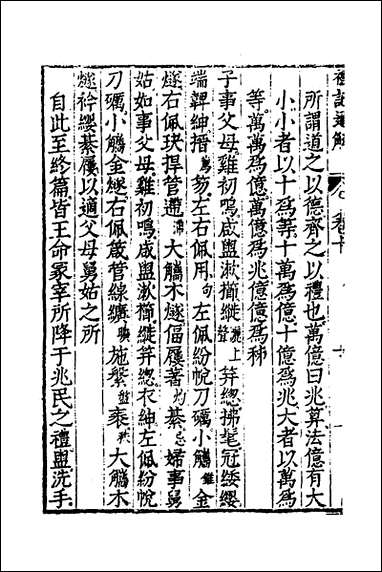 禮記通解 卷十
所謂道之以德齊之以禮也萬億曰兆算法億有大
小小者以十爲等十萬爲億十億爲兆大者以萬爲
等萬萬爲億萬億爲兆億億爲秭
子事父母雞初鳴咸盥漱櫛縰笄總拂髦冠緌纓
端韠紳搢笏左右佩用左佩紛帨刀礪小觿金
燧右佩玦捍管遰大觿木燧偪屨著綦婦事舅
姑如事父母雞初鳴咸盥漱櫛縰笄總衣紳左佩紛帨
刀礪小觿金燧右佩箴管線纊施縏袠大觿木
燧衿纓綦屨以適父母舅姑之所
自此至終篇皆王命冢宰所降于兆民之禮盥洗手